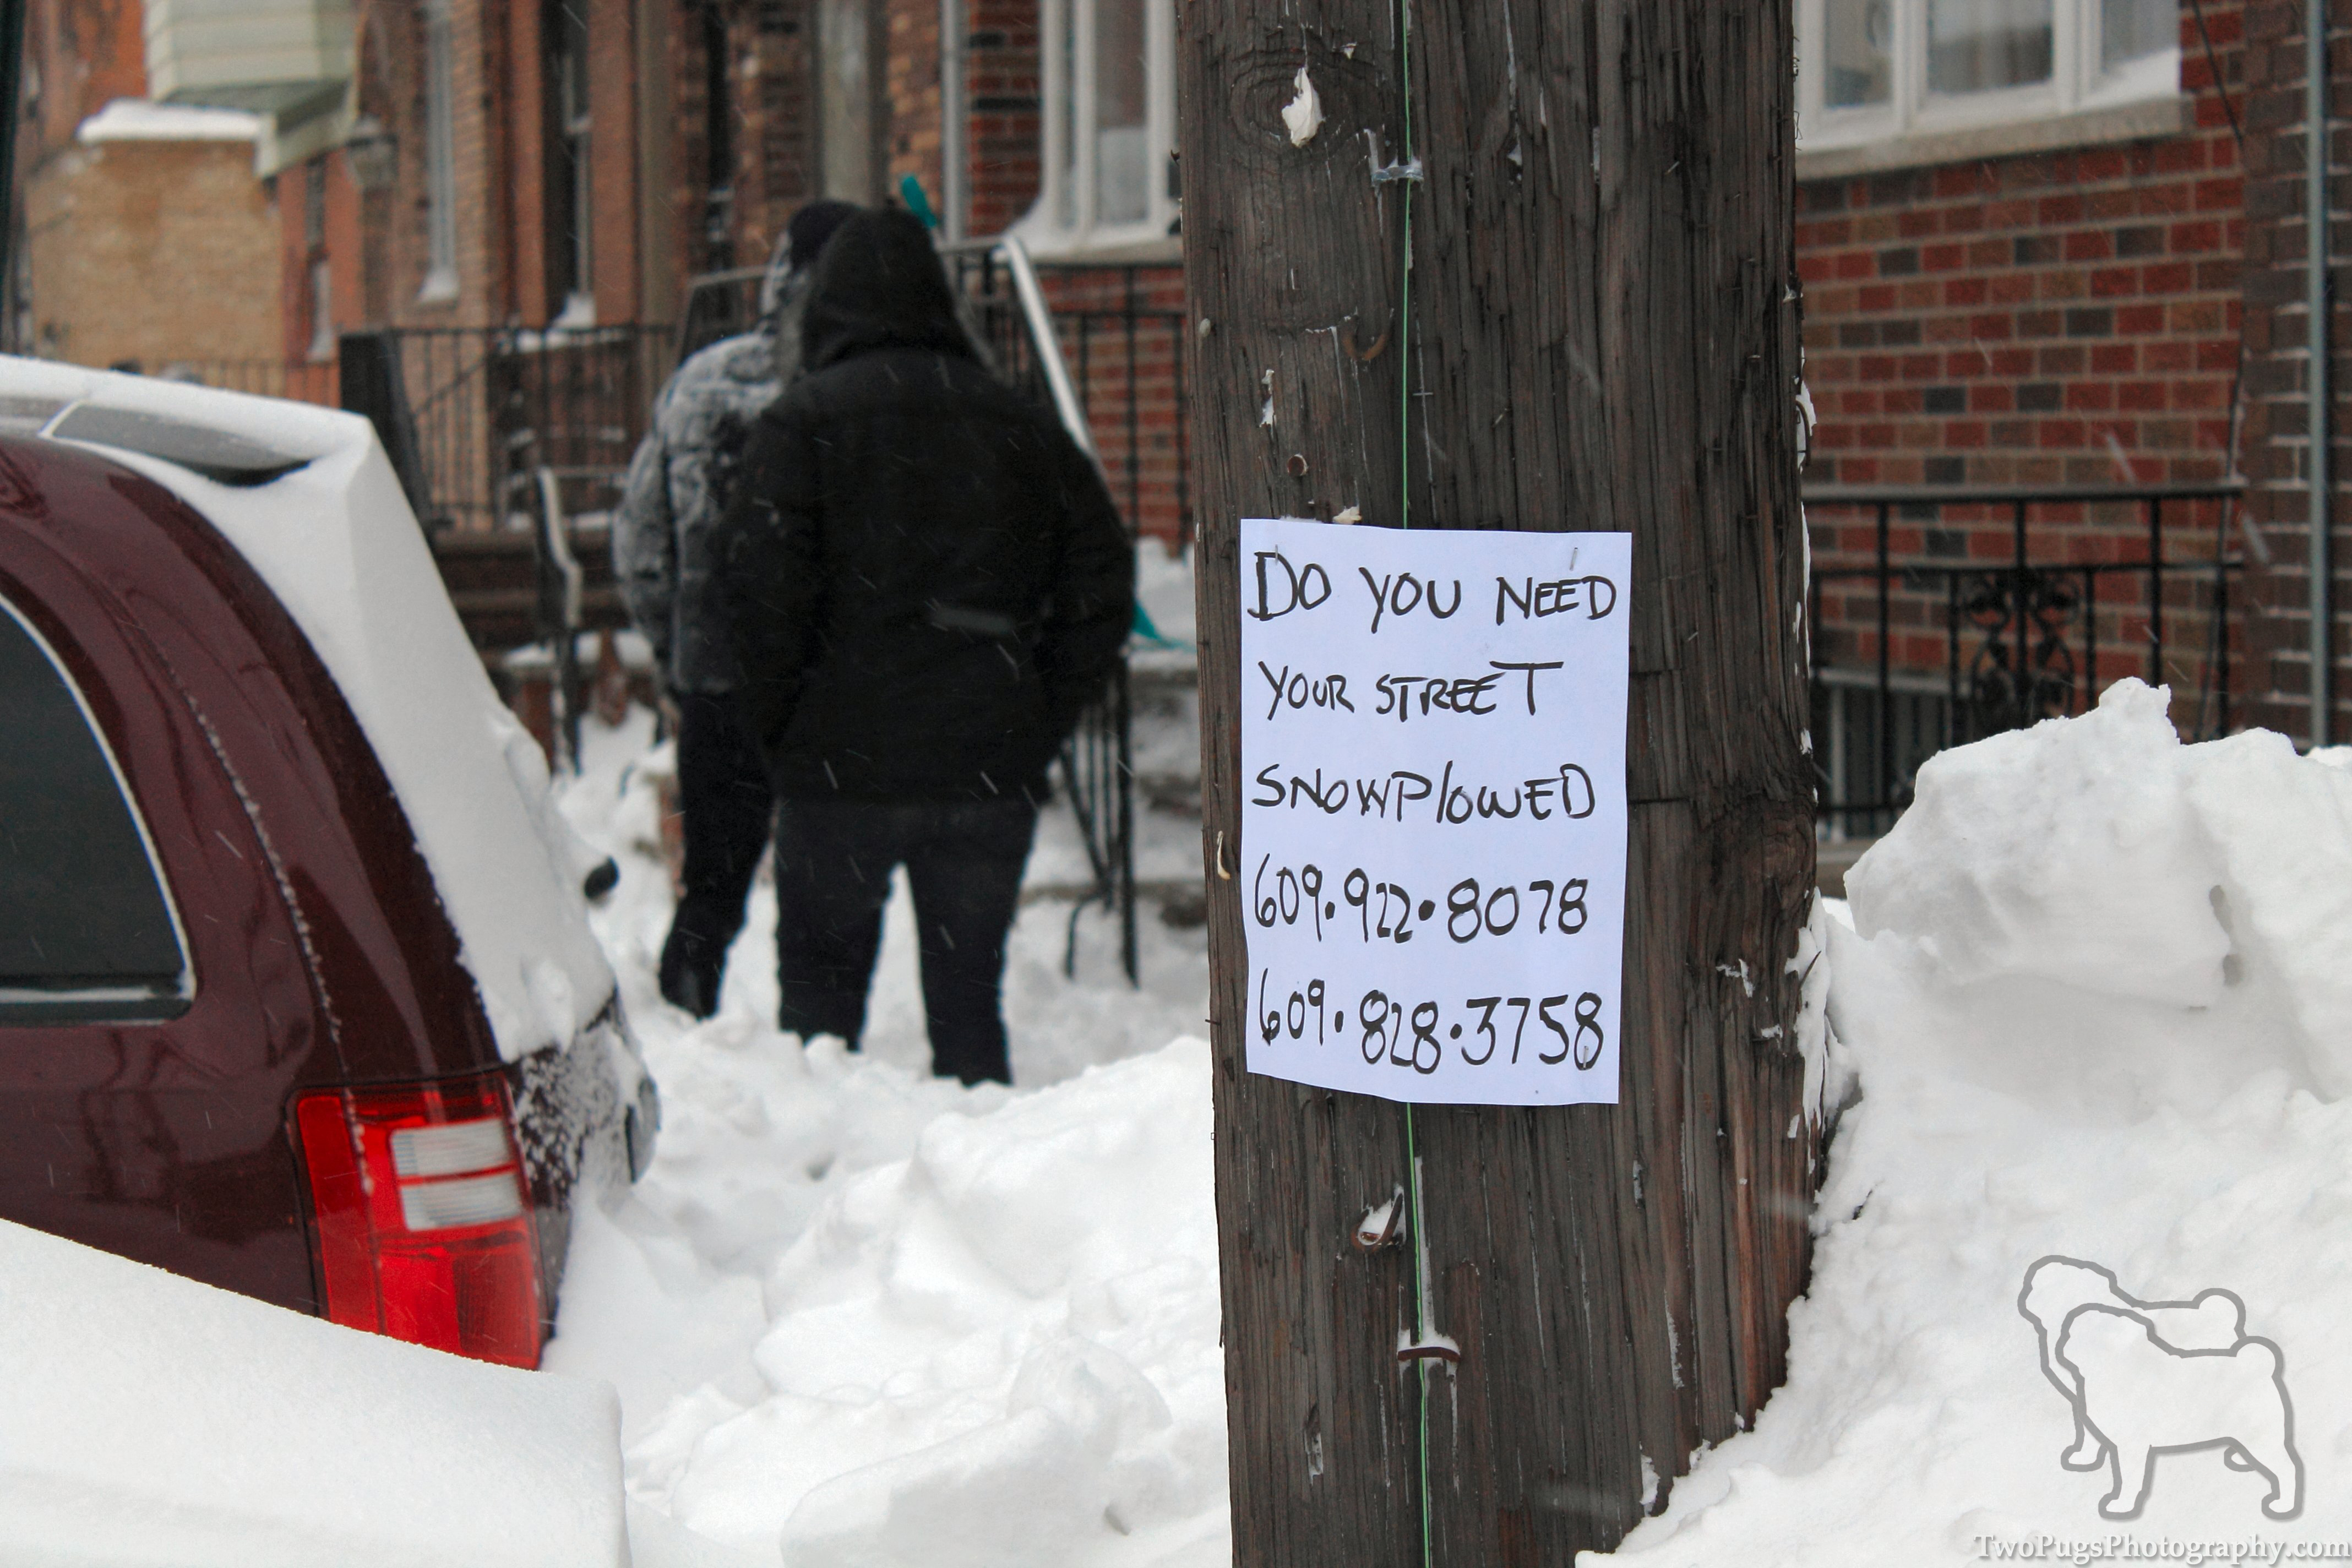 DO YOU NEED
YOUR STREET
SNOWPlOWED
609.922.8078
609.828.3758
TwoPugsPhotography.com